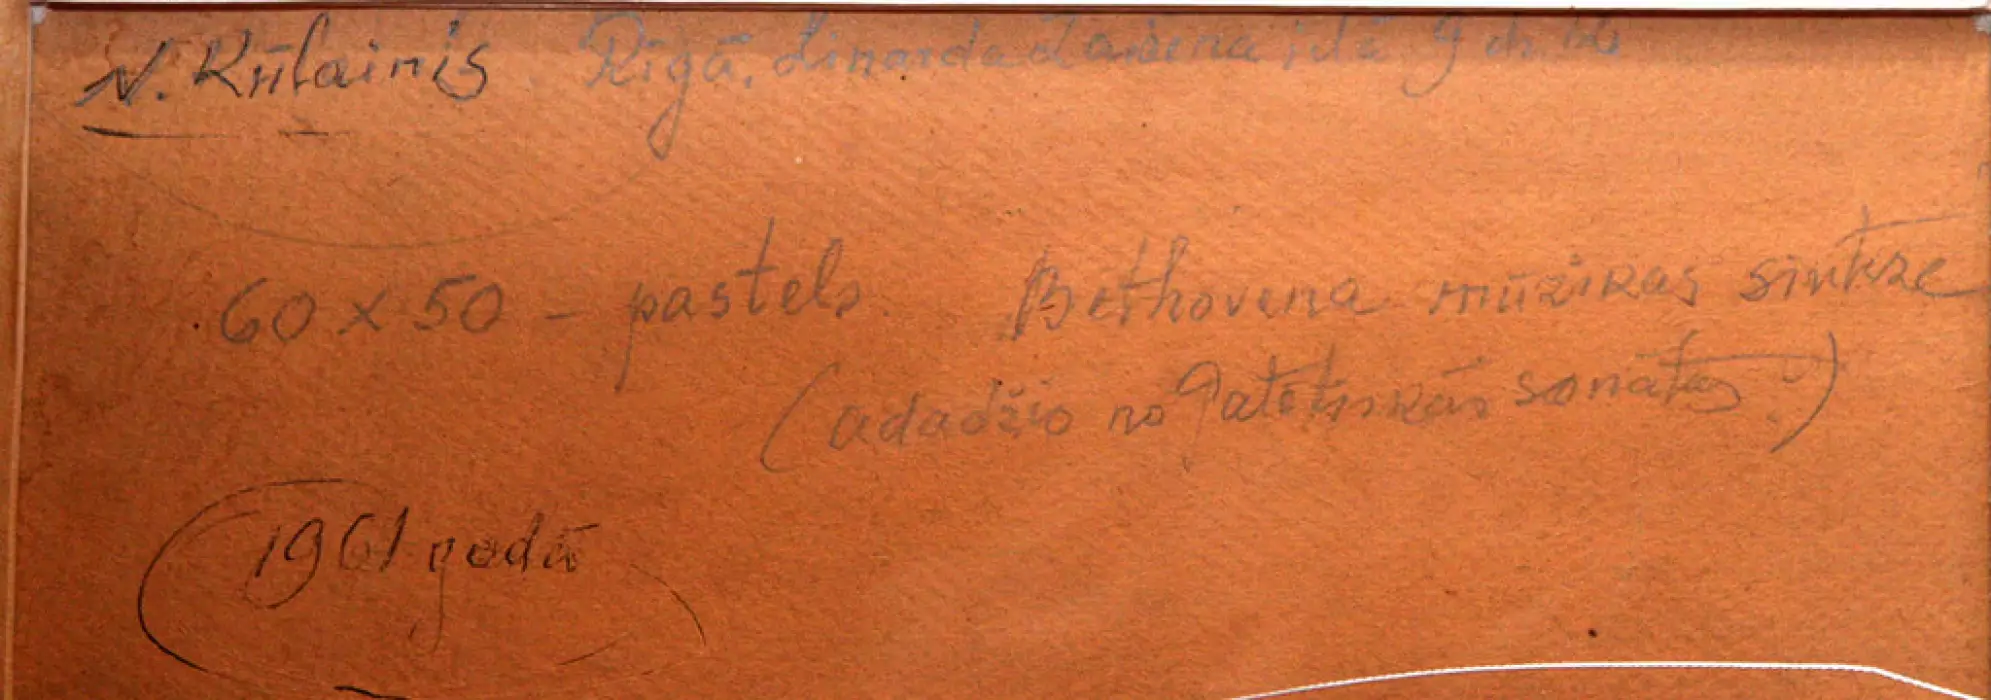 N. Kūlainis Rīgā, Linarda Laicena ielā 9 dz.
60 x 50 – pastels. Bethovena mūzikas sintēze
(adadžio no Patētiskās sonātas.)
1961 gadā